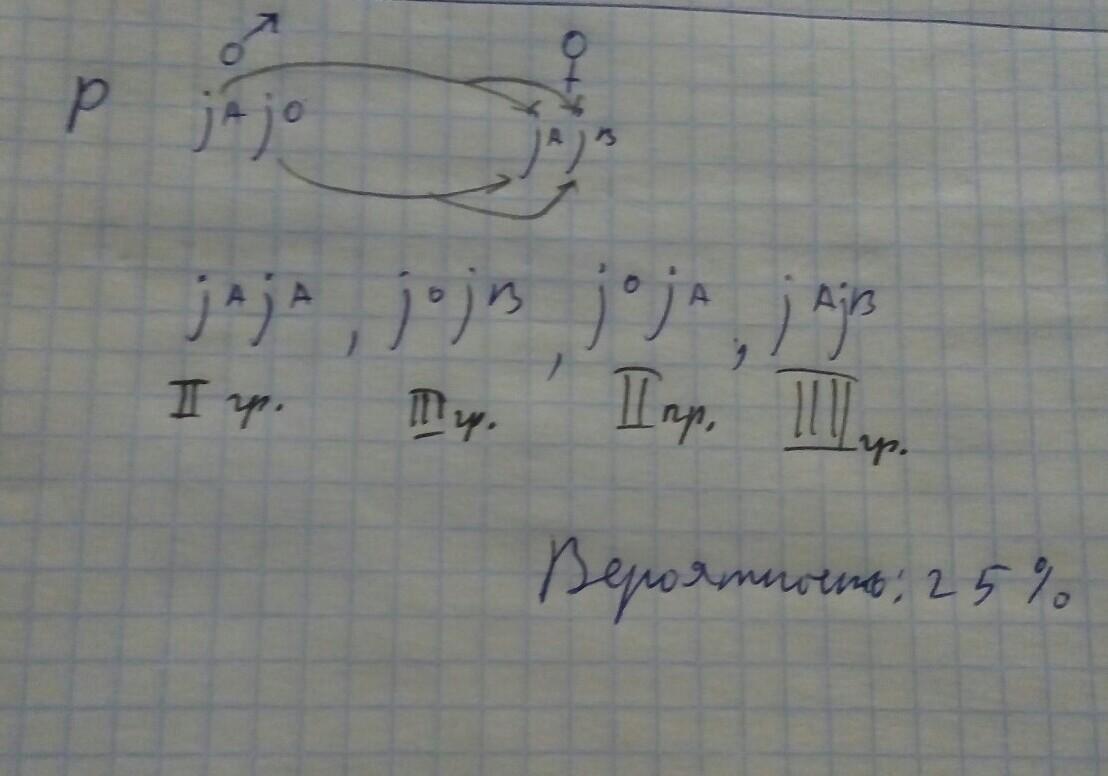 ♂ ♀
P jᴬ jᴼ jᴬ jᴮ
jᴬ jᴬ, jᴼ jᴮ, jᴼ jᴬ, jᴬ jᴮ
II гр. III гр. II гр. IIII гр.
Вероятность: 25%